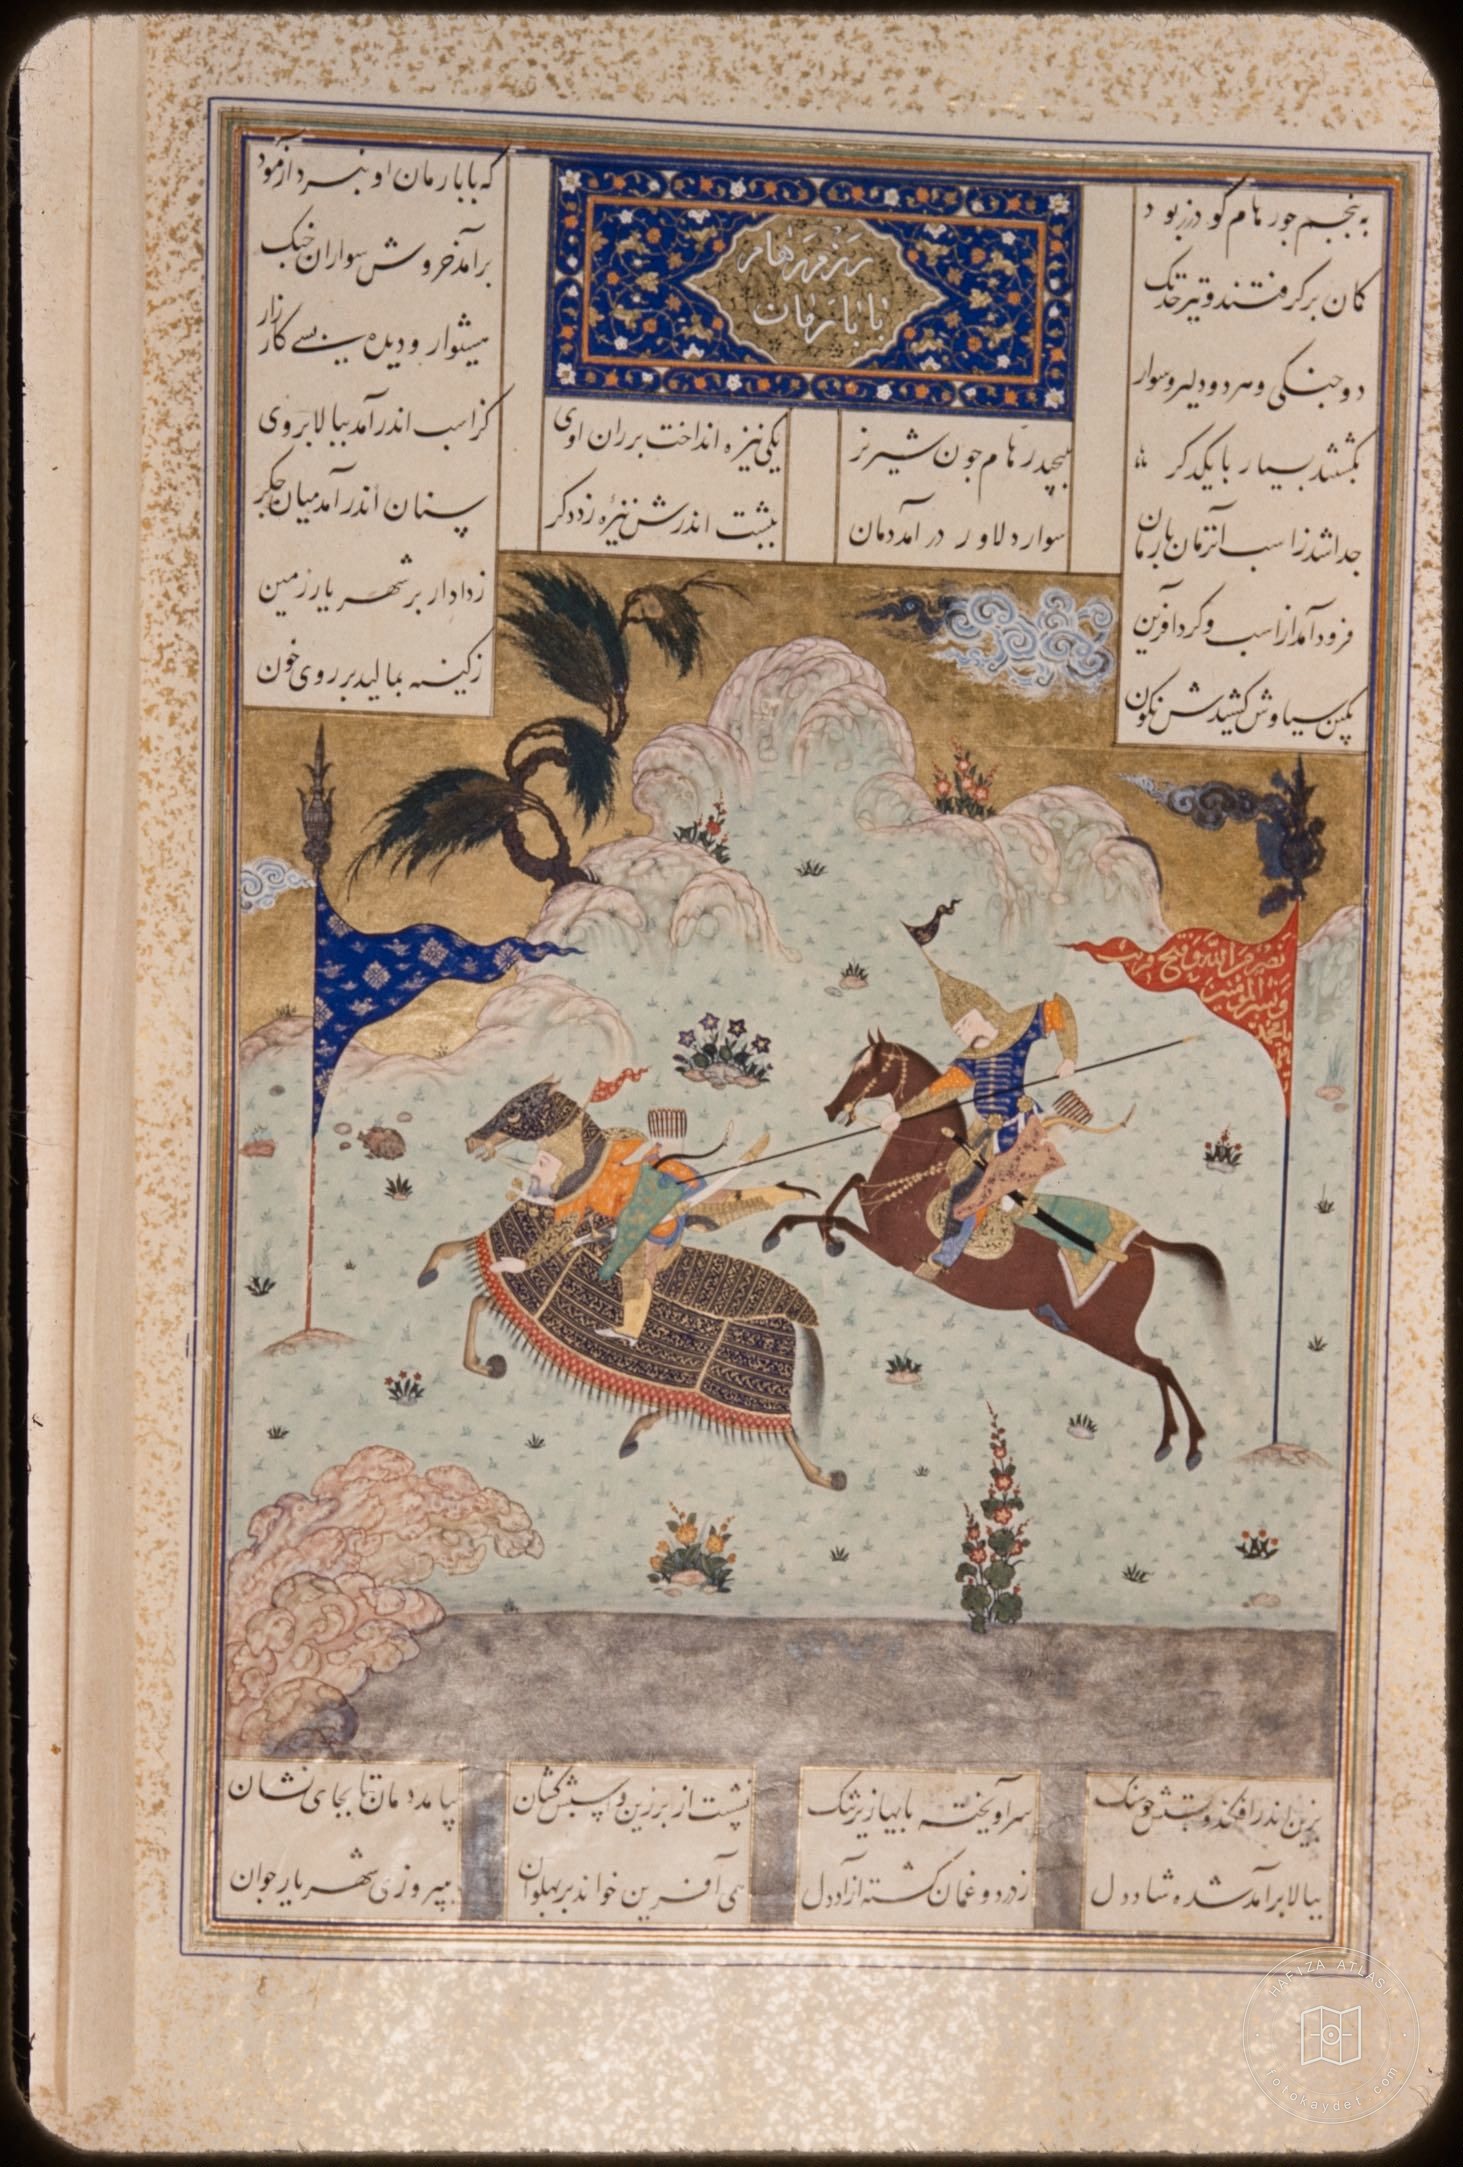 رزم رهام
با بارمان
به پنجم جو رهام گودرز بود
که با بارمان او نبرد آزمود
کمان برگرفتند و تیر خدنگ
برآمد خروش سواران جنگ
دو جنگی و مرد و دلیر و سوار
هشیوار و دیده بسی کارزار
بگشتند بسیار با یکدگر
بپیچید رهام چون شیر نر
یکی نیزه انداخت بر ران اوی
کز اسب اندر آمد ببالا بروی
جدا شد ز اسب آنزمان بارمان
سوار دلاور درآمد دمان
به پشت اندرش نیزه زد دگر
سنان اندر آمد میان جگر
فرود آمد از اسب و کرد آفرین
ز دادار بر شهریار زمین
بکین سیاوش کشیدش نگون
ز کینه بمالید بر روی خون
بزین اندر افکند و بستش چو سنگ
سر آویخته پایها زیر تنگ
نشست از بر زین و اسپش کشان
بیامد دمان تا بجای نشان
ببالا برآمد شده شاددل
ز درد و غمان گشته آزاددل
همی آفرین خواند بر پهلوان
بپیروزی شهریار جوان
نصر من الله و فتح قریب
وبشر المؤمنین
یا محمد
HAFIZA ATLASI
fotokaydet.com